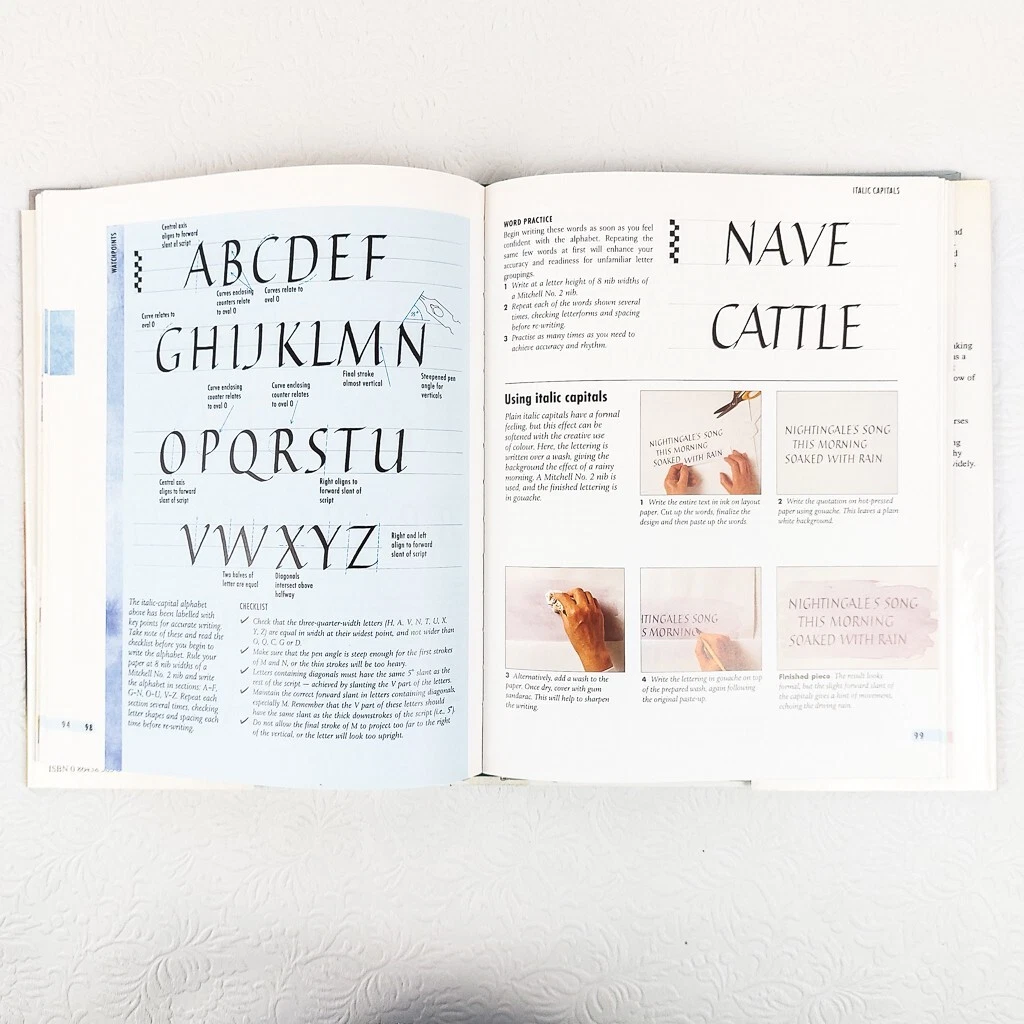 WATCHPOINTS
Central axis
aligns to forward
slant of script
ABCDEF
Curves enclosing
counters relate
to oval O
Curves relate to
oval O
Curve relates to
oval O
GHIJKLMN
Final stroke
almost vertical
Steepened pen
angle for
verticals
Curve enclosing
counter relates
to oval O
Curve enclosing
counter relates
to oval O
OPQRSTU
Central axis
aligns to forward
slant of script
Right aligns to
forward slant of
script
VWXYZ
Right and left
align to forward
slant of script
Two halves of
letter are equal
Diagonals
intersect above
halfway
The italic-capital alphabet
above has been labelled with
key points for accurate writing.
Take note of these and read the
checklist before you begin to
write the alphabet. Rule your
paper at 8 nib widths of a
Mitchell No. 2 nib and write
the alphabet in sections: A–F,
G–N, O–U, V–Z. Repeat each
section several times, checking
letter shapes and spacing each
time before re-writing.
CHECKLIST
✓ Check that the three-quarter-width letters (H, A, V, N, T, U, X,
Y, Z) are equal in width at their widest point, and not wider than
O, Q, C, G or D.
✓ Make sure that the pen angle is steep enough for the first strokes
of M and N, or the thin strokes will be too heavy.
✓ Letters containing diagonals must have the same 5° slant as the
rest of the script — achieved by slanting the V part of the letters.
✓ Maintain the correct forward slant in letters containing diagonals,
especially M. Remember that the V part of these letters should
have the same slant as the thick downstrokes of the script (i.e., 5°).
✓ Do not allow the final stroke of M to project too far to the right
of the vertical, or the letter will look too upright.
98
ISBN 0
ITALIC CAPITALS
WORD PRACTICE
Begin writing these words as soon as you feel
confident with the alphabet. Repeating the
same few words at first will enhance your
accuracy and readiness for unfamiliar letter
groupings.
1 Write at a letter height of 8 nib widths of
a Mitchell No. 2 nib.
2 Repeat each of the words shown several
times, checking letterforms and spacing
before re-writing.
3 Practise as many times as you need to
achieve accuracy and rhythm.
NAVE
CATTLE
Using italic capitals
Plain italic capitals have a formal
feeling, but this effect can be
softened with the creative use
of colour. Here, the lettering is
written over a wash, giving the
background the effect of a rainy
morning. A Mitchell No. 2 nib is
used, and the finished lettering is
in gouache.
NIGHTINGALES SONG
THIS MORNING
SOAKED WITH RAIN
1 Write the entire text in ink on layout
paper. Cut up the words, finalize the
design and then paste up the words
NIGHTINGALES SONG
THIS MORNING
SOAKED WITH RAIN
2 Write the quotation on hot-pressed
paper using gouache. This leaves a plain
white background.
3 Alternatively, add a wash to the
paper. Once dry, cover with gum
sandarac. This will help to sharpen
the writing.
HTINGALES SONG
S MORNING
4 Write the lettering in gouache on top
of the prepared wash, again following
the original paste-up.
NIGHTINGALES SONG
THIS MORNING
SOAKED WITH RAIN
Finished piece The result looks
formal, but the slight forward slant of
the capitals gives a hint of movement,
echoing the driving rain.
99